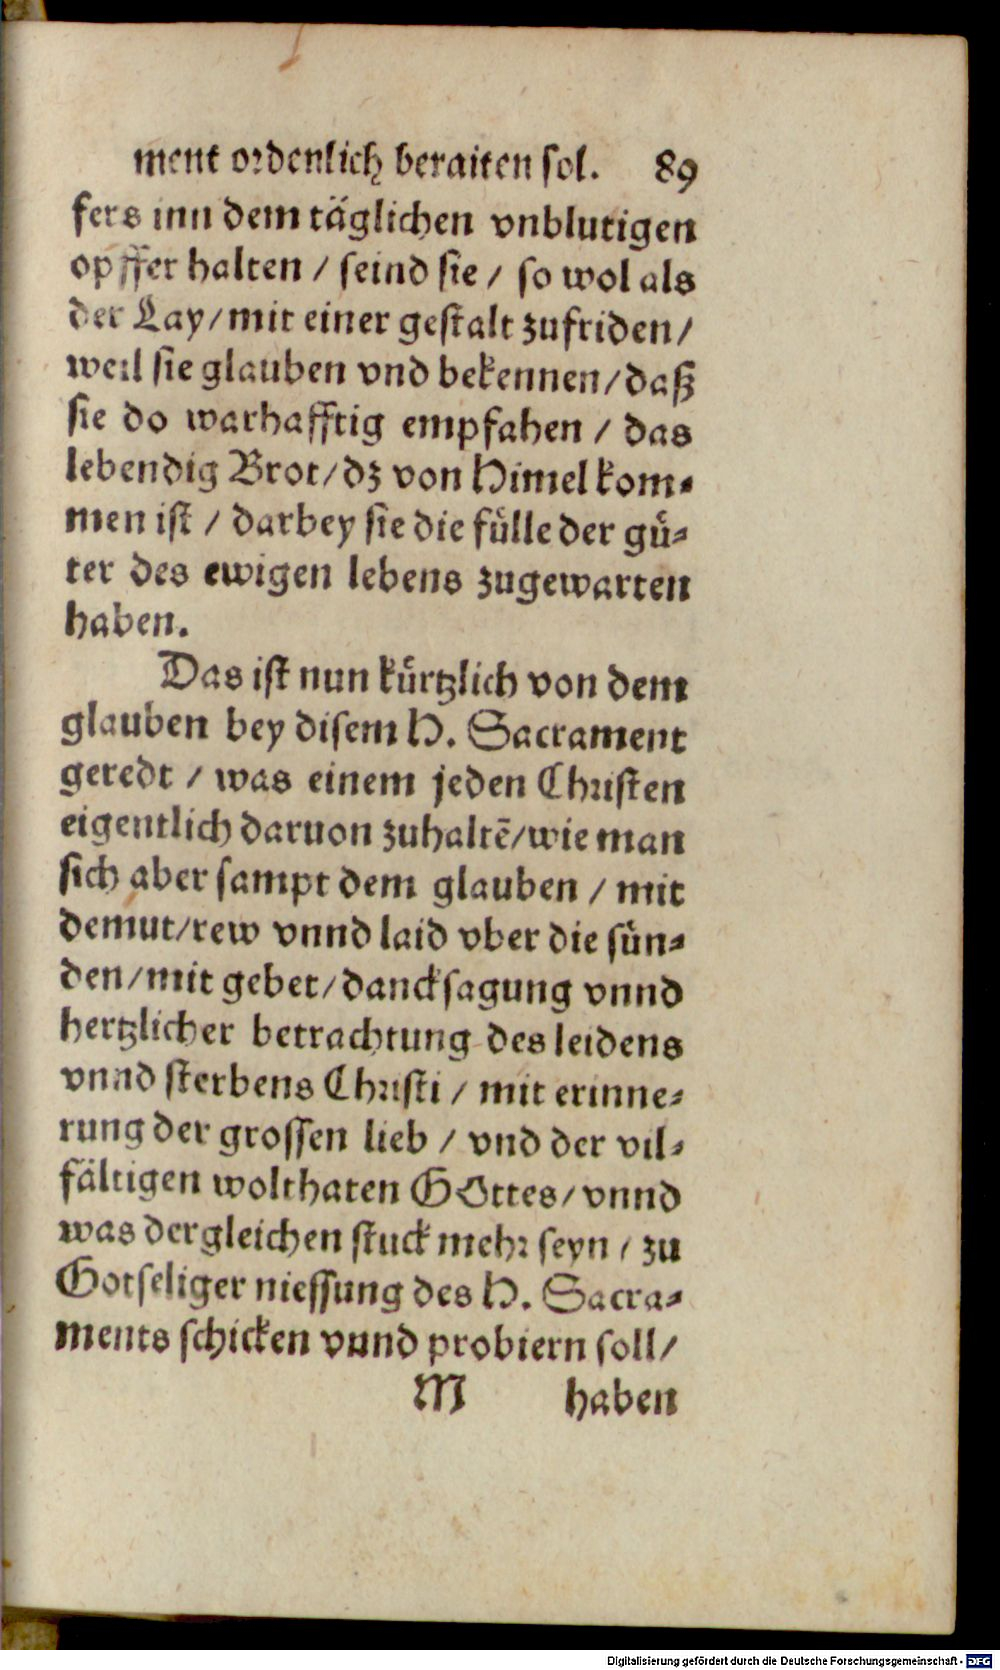 ment ordenlich beraiten sol. 89
fers inn dem täglichen vnblutigen
opffer halten / seind sie / so wol als
der Lay/mit einer gestalt zufriden/
weil sie glauben vnd bekennen/daß
sie do warhafftig empfahen / das
lebendig Brot/dz von Himel kom-
men ist / darbey sie die fülle der gü-
ter des ewigen lebens zugewarten
haben.
Das ist nun kürtzlich von dem
glauben bey disem H. Sacrament
geredt / was einem jeden Christen
eigentlich daruon zuhaltē/wie man
sich aber sampt dem glauben / mit
demut/rew vnnd laid vber die sün-
den/mit gebet/dancksagung vnnd
hertzlicher betrachtung des leidens
vnnd sterbens Christi / mit erinne-
rung der grossen lieb / vnd der vil-
fältigen wolthaten GOttes/vnnd
was dergleichen stuck mehr seyn / zu
Gotseliger niessung des H. Sacra-
ments schicken vnnd probiern soll/
M haben
Digitalisierung gefördert durch die Deutsche Forschungsgemeinschaft - DFG